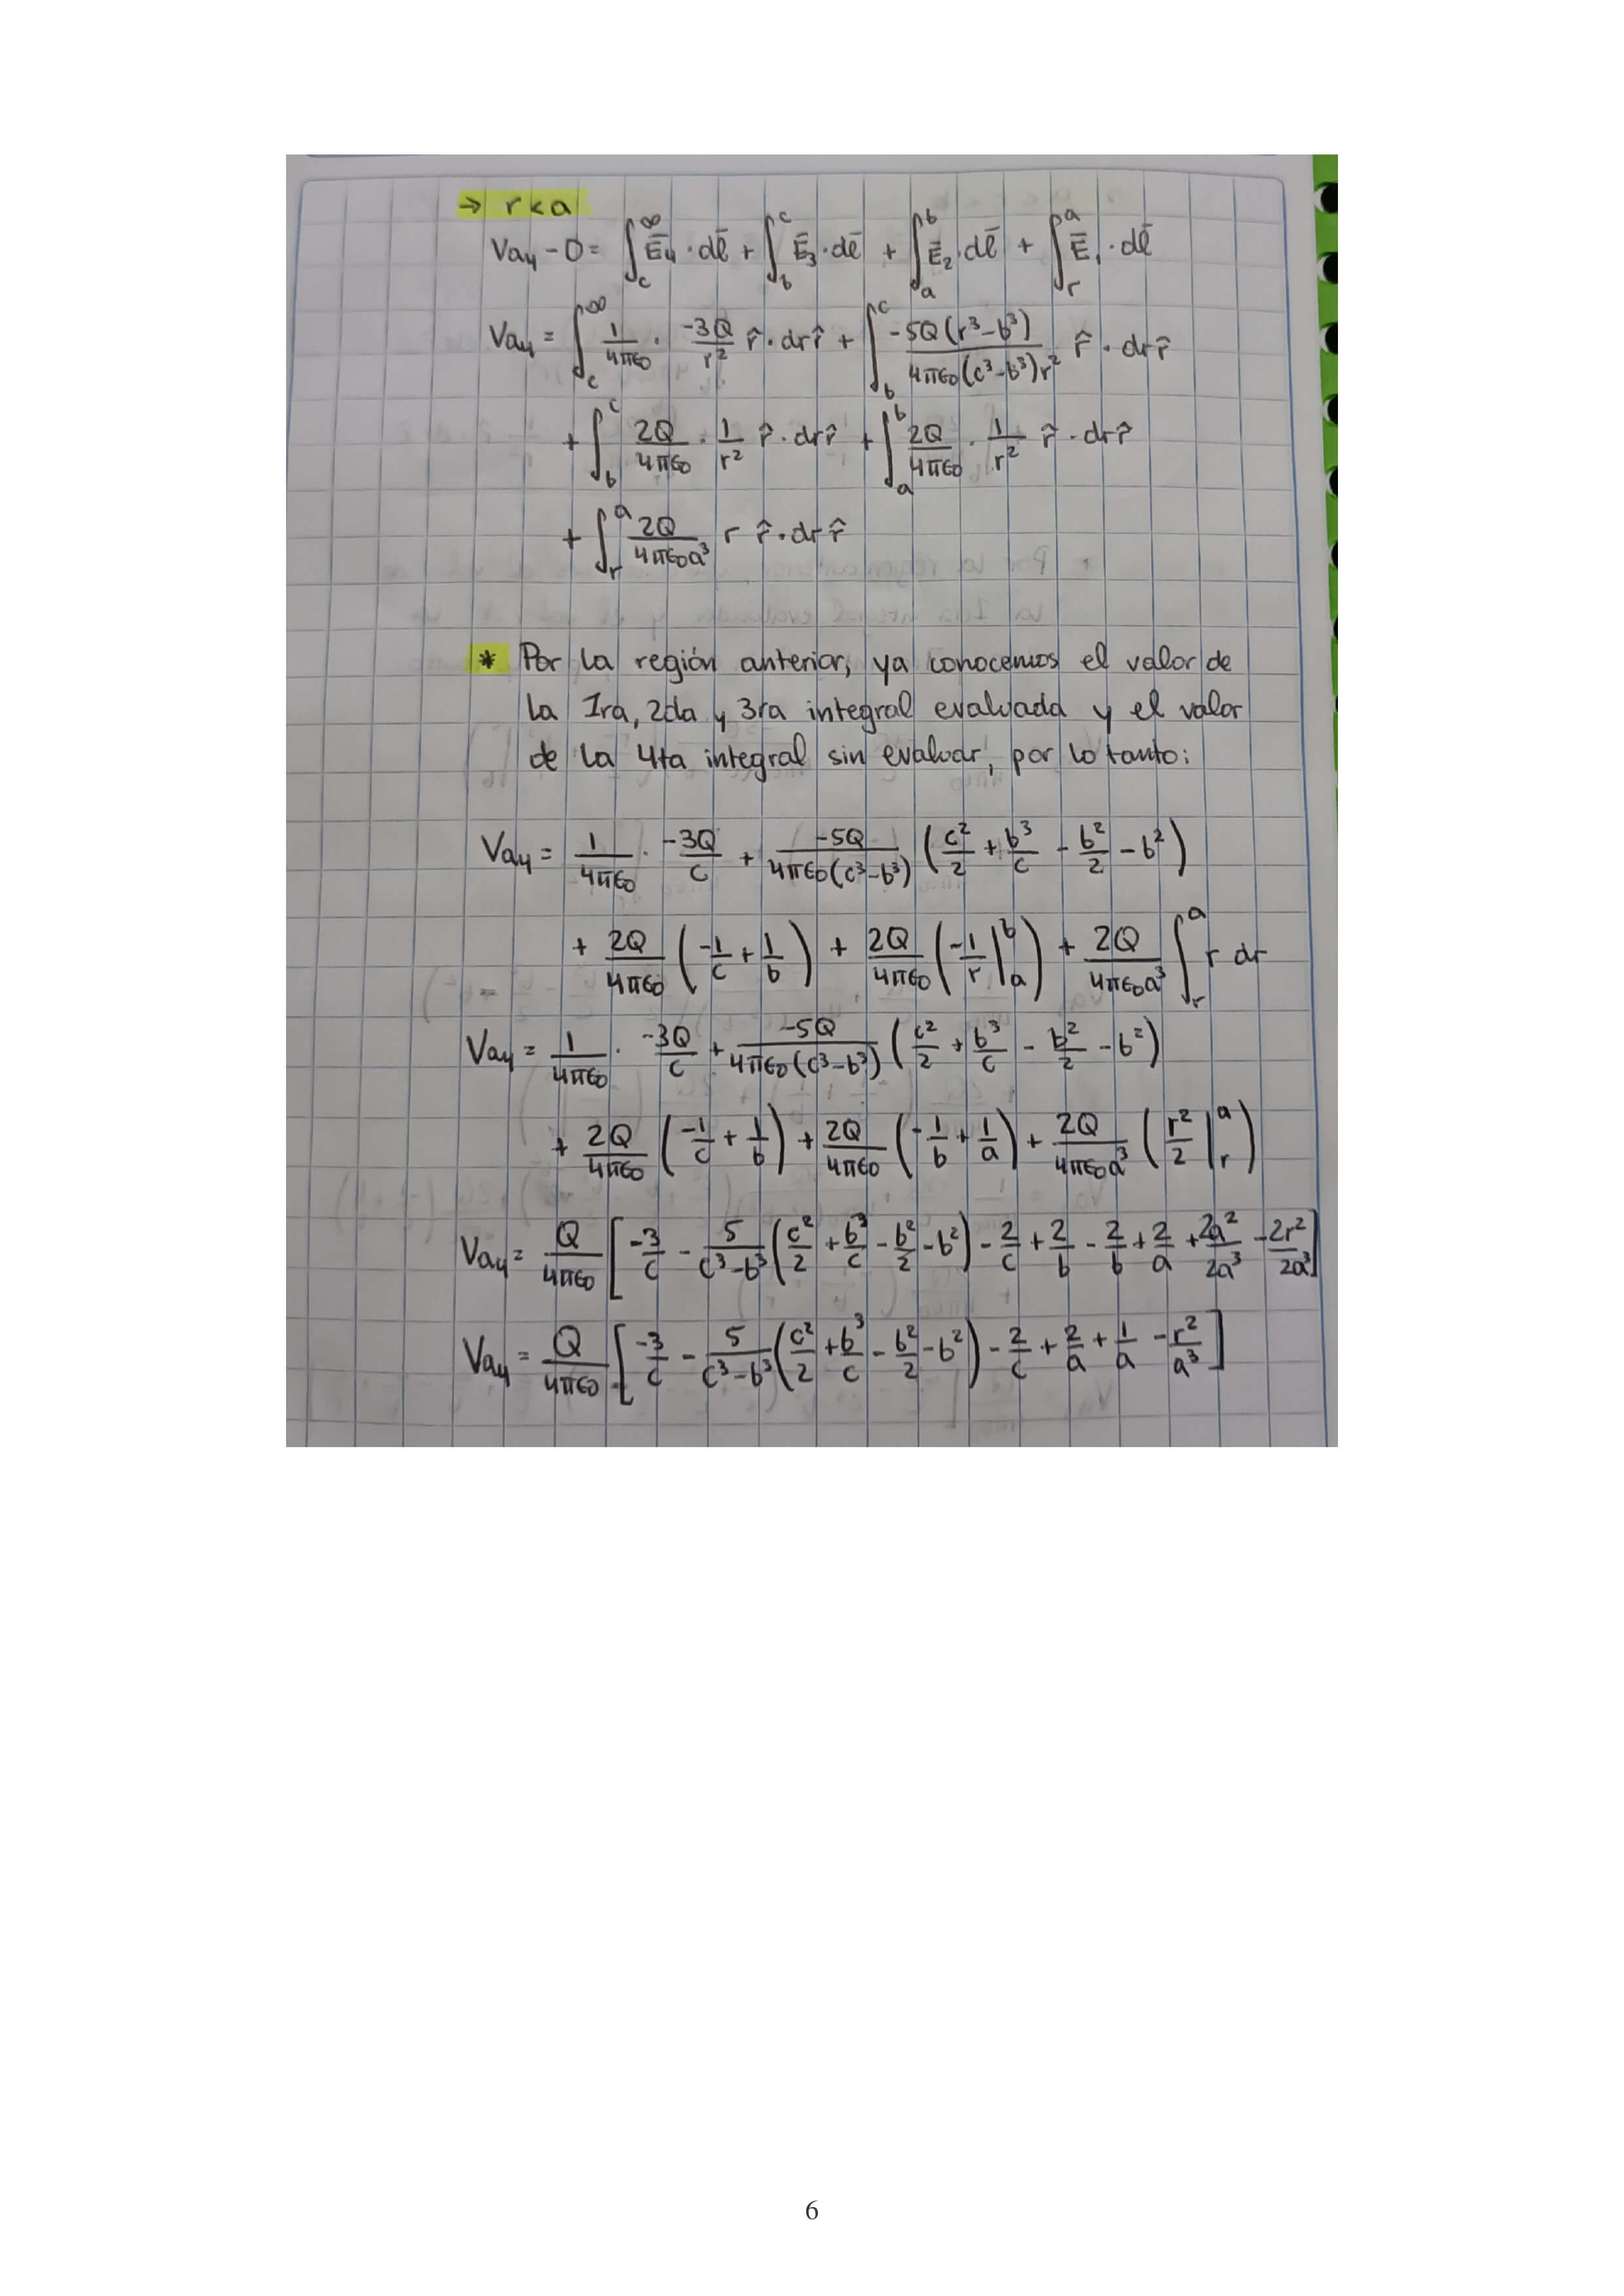 → r<a
Va₄ - 0 = ∫_c^∞ Ē₄ · dl̄ + ∫_b^c Ē₃ · dl̄ + ∫_a^b Ē₂ · dl̄ + ∫_r^a Ē₁ · dl̄
Va₄ = ∫_c^∞ 1/(4πε₀) · -3Q/r² r̂ · dr r̂ + ∫_b^c -5Q(r³-b³)/(4πε₀(c³-b³)r²) r̂ · dr r̂
+ ∫_b^c 2Q/(4πε₀) · 1/r² r̂ · dr r̂ + ∫_a^b 2Q/(4πε₀) · 1/r² r̂ · dr r̂
+ ∫_r^a 2Q/(4πε₀a³) r r̂ · dr r̂
* Por la región anterior, ya conocemos el valor de
la 1ra, 2da y 3ra integral evaluada y el valor
de la 4ta integral sin evaluar, por lo tanto:
Va₄ = 1/(4πε₀) · -3Q/c + -5Q/(4πε₀(c³-b³)) (c²/2 + b³/c - b²/2 - b²)
+ 2Q/(4πε₀) (-1/c + 1/b) + 2Q/(4πε₀) (-1/r |_a^b) + 2Q/(4πε₀a³) ∫_r^a r dr
Va₄ = 1/(4πε₀) · -3Q/c + -5Q/(4πε₀(c³-b³)) (c²/2 + b³/c - b²/2 - b²)
+ 2Q/(4πε₀) (-1/c + 1/b) + 2Q/(4πε₀) (-1/b + 1/a) + 2Q/(4πε₀a³) (r²/2 |_r^a)
Va₄ = Q/(4πε₀) [-3/c - 5/(c³-b³) (c²/2 + b³/c - b²/2 - b²) - 2/c + 2/b - 2/b + 2/a + 2a²/2a³ - 2r²/2a³]
Va₄ = Q/(4πε₀) [-3/c - 5/(c³-b³) (c²/2 + b³/c - b²/2 - b²) - 2/c + 2/a + 1/a - r²/a³]
6